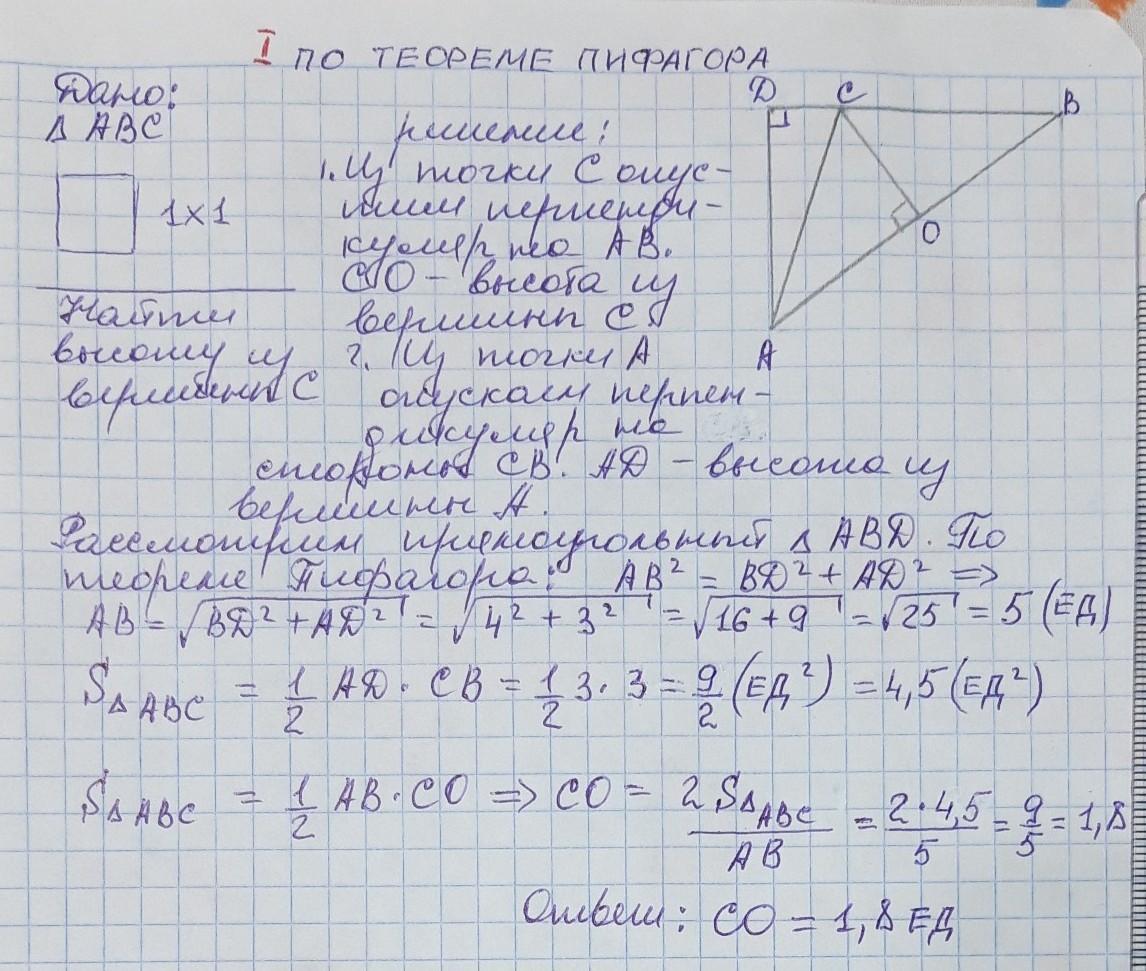 I ПО ТЕОРЕМЕ ПИФАГОРА
Дано:
Δ ABC
1x1
Найти
высоту из
вершины C
решение:
1. Из точки C опус-
тим перпенди-
куляр на AB.
CO – высота из
вершины C.
2. Из точки A
опускаем перпен-
дикуляр на
стороны CB. AD – высота из
вершины A.
D C B
O
A
Рассмотрим прямоугольный Δ ABD. По
теореме Пифагора: AB² = BD² + AD² =>
AB = √BD² + AD² = √4² + 3² = √16 + 9 = √25 = 5 (ЕД)
SΔABC = 1/2 AD · CB = 1/2 3 · 3 = 9/2 (ЕД²) = 4,5 (ЕД²)
SΔABC = 1/2 AB · CO => CO = 2 SΔABC / AB = 2 · 4,5 / 5 = 9/5 = 1,8
Ответ: CO = 1,8 ЕД